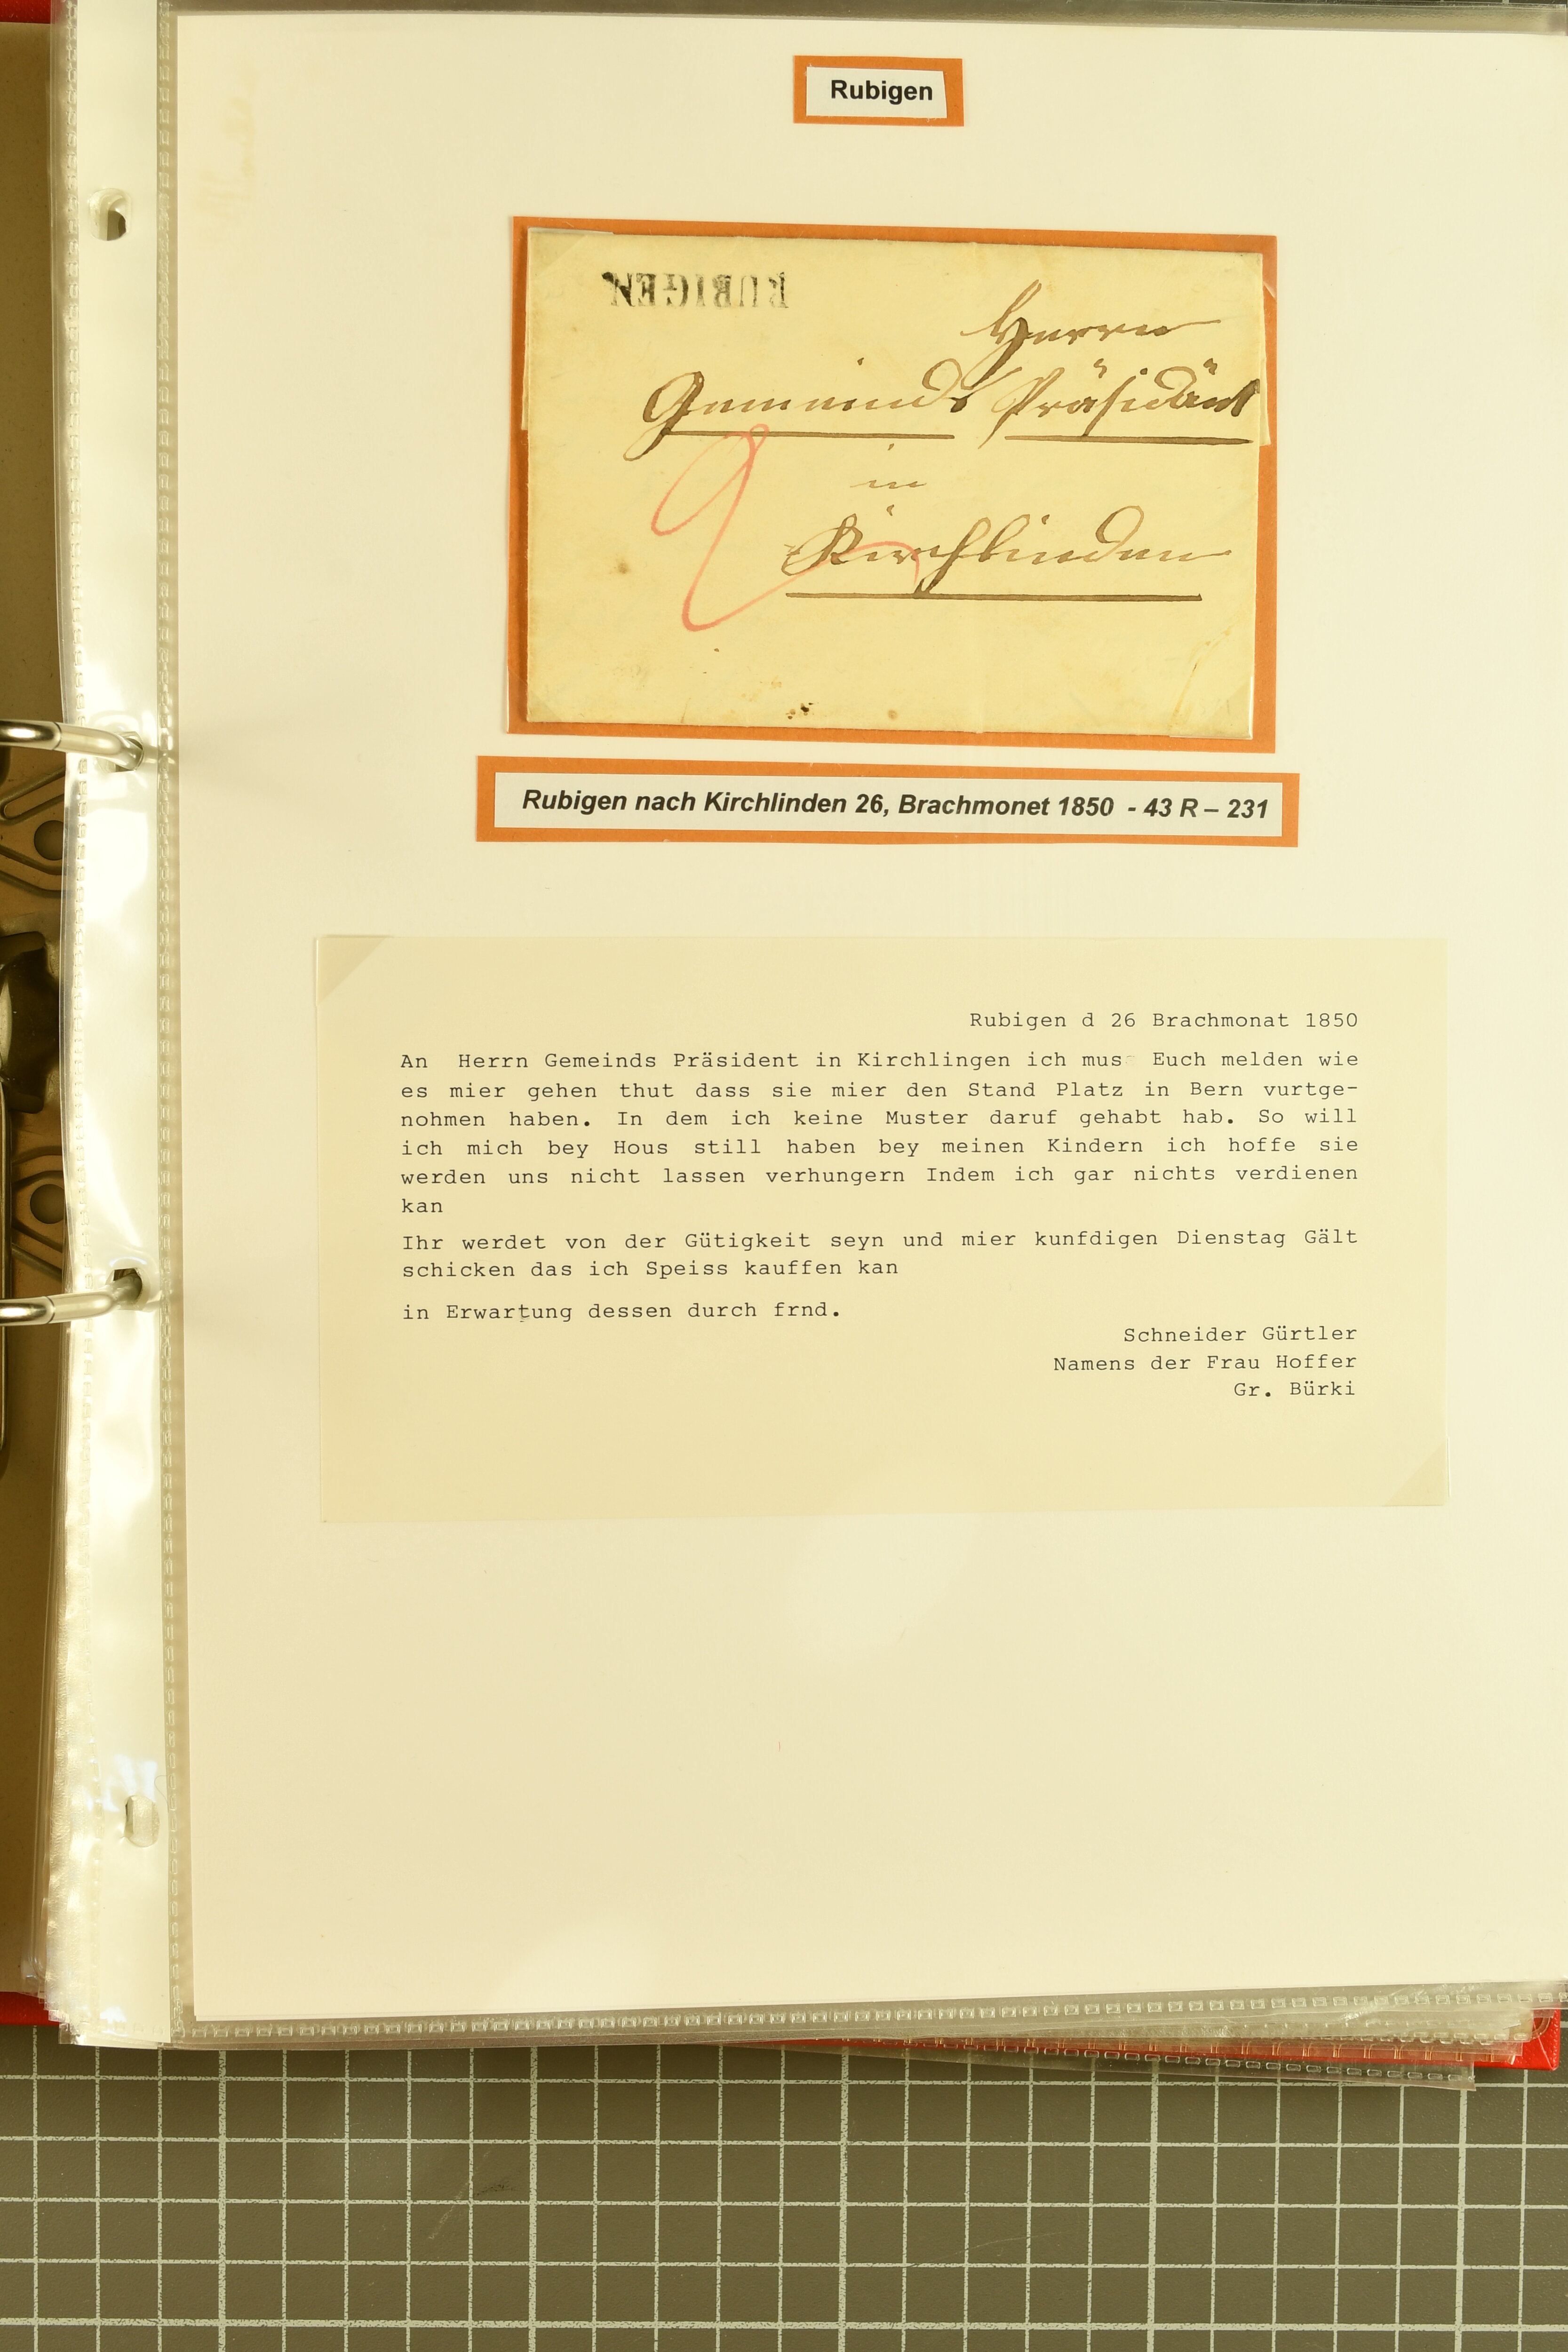 Rubigen
RUBIGEN
Herrn
Gemeinds Präsidänt
in
Kirchlinden
Rubigen nach Kirchlinden 26, Brachmonet 1850 - 43 R – 231
Rubigen d 26 Brachmonat 1850
An Herrn Gemeinds Präsident in Kirchlingen ich mus Euch melden wie
es mier gehen thut dass sie mier den Stand Platz in Bern vurtge-
nohmen haben. In dem ich keine Muster daruf gehabt hab. So will
ich mich bey Hous still haben bey meinen Kindern ich hoffe sie
werden uns nicht lassen verhungern Indem ich gar nichts verdienen
kan
Ihr werdet von der Gütigkeit seyn und mier kunfdigen Dienstag Gält
schicken das ich Speiss kauffen kan
in Erwartung dessen durch frnd.
Schneider Gürtler
Namens der Frau Hoffer
Gr. Bürki